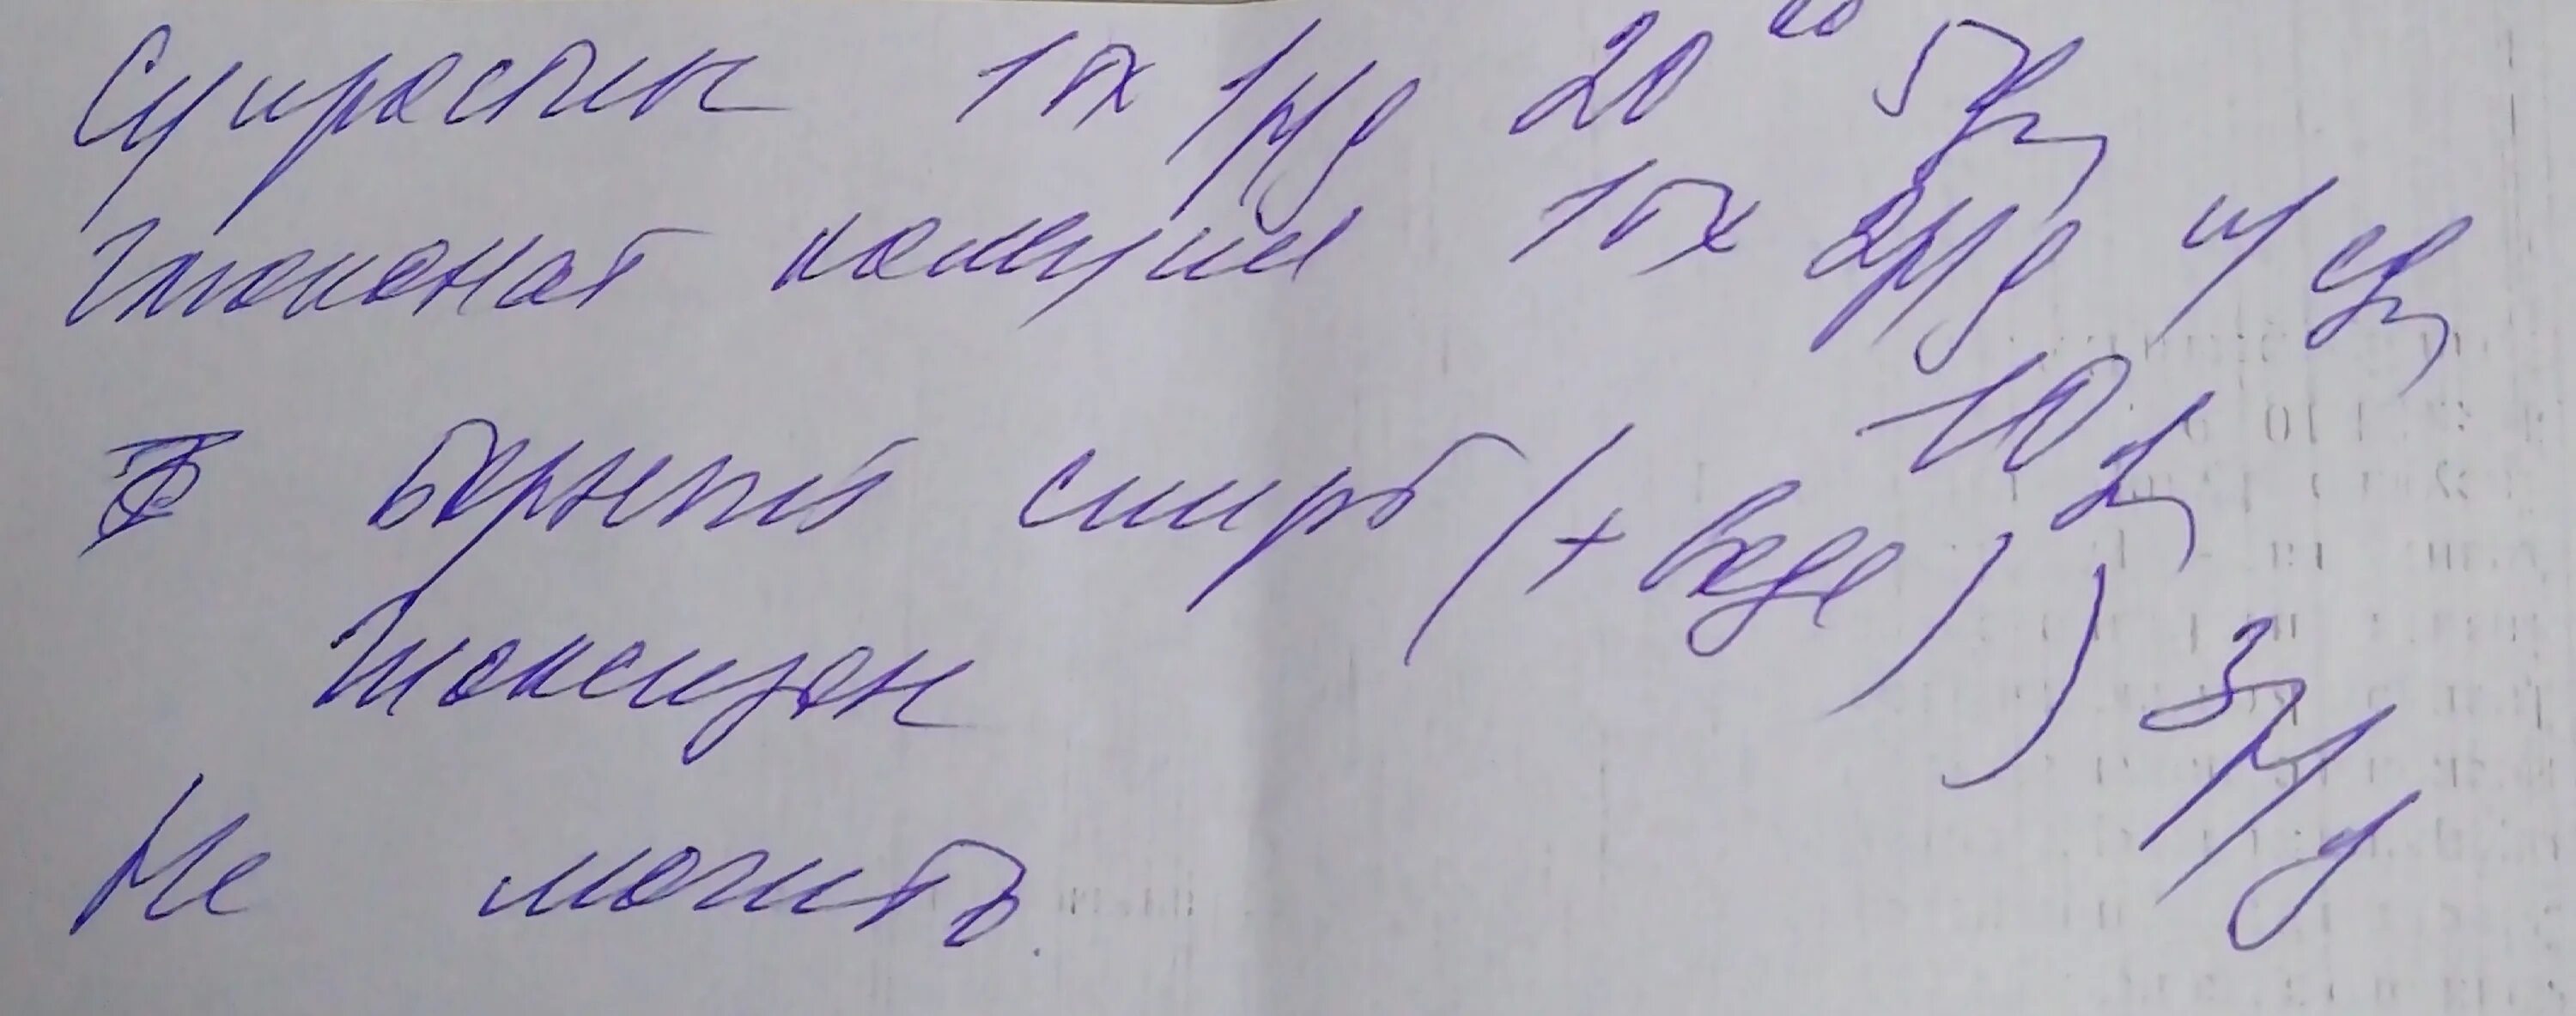 Супрастин 1т х 1р/д 20⁰⁰ 5дн
Глюконат кальция 1т х 2р/д ч/з
10 дн
Борный спирт (+ вода)
Тиоксизон ) 3р/д
Не мочить.